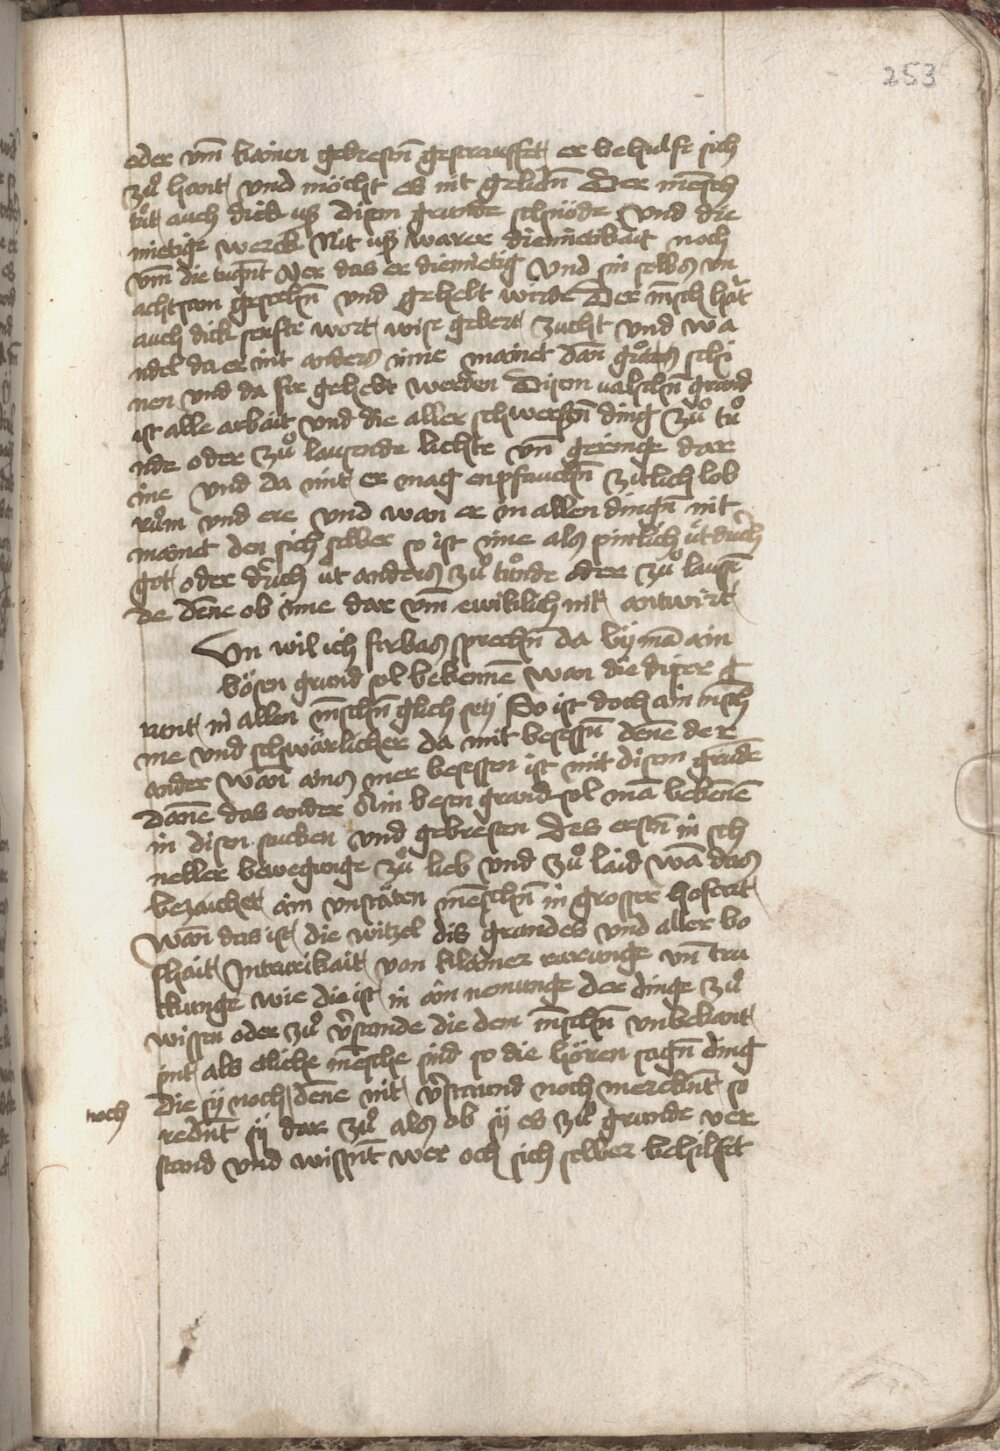 253
oder vm̄ kainen gebrestñ gestrauffet er behulfe sich
zů hant vnd möcht es nit gelidñ Der mēsch
tůt auch dick uß disem grunde schnöde vnd die
mietige werck Nit uß warer diemietikait noch
vm̄ die tugn̄t Mer das er diemietig vnd sin selbs vn
achtsam geschehñ vnd gehelt wirde Der m̄sch hat
auch dick senfte wort wise gebert zucht vnd wa
ndel da er nit anders inne mainet dañ gůtes schi
nen vnd da für gehebt werden Disem valschñ grund
ist alle arbait vnd die aller schwerstñ ding zů tů
nde oder zů laussende lichte vñ geringe dar
ine vnd da mit er mag enpfauchñ zitlich lob
rům vnd ere vnd wan er in allen dingñ nit
mainet den sich selber so ist ime als pinlich üt durch
got oder durch üt anders zů tůnde oder zů laussē
de deñe ob ime dar vm̄ ewiklich nit antwirt
Un wil ich fürbas sprechñ da by mā ain
bösen grund sol bekennē wan die diser g
runt in allen m̄schñ glich sej So ist doch ain m̄sch
me vnd schwärlicher da mit besessñ deñe der
ander wañ ains mer besessen ist mit disem grūde
dañe das ander Ain besen grund sol mā bekeñē
in disen stucken vnd gebresten des erstñ in sch
neller bewegunge zů lieb vnd zů laid wā das
bezaichet ain vnstäten mēschñ in grosser hofart
wañ das ist die witzel dis grundes vnd aller bo
shait Intrurikait von klainer rarunge vñ tru
ckunge wie die ist in ain nemunge der dinge zů
wissen oder zů v̄stande die dem m̄schñ vnbekant
sint als etliche mēsche sind so die hören sagñ ding
die sy noch deñe nit v̄staund noch merckñt so
noch
redñt sy dar zů als ob sy es zů grunde ver
stand vnd wissñt wer och sich selber behilfet